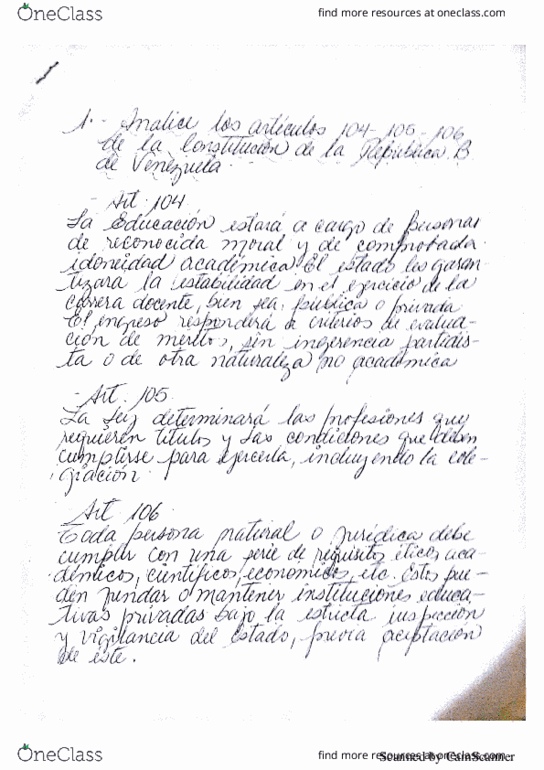 OneClass
find more resources at oneclass.com
1.- Analice los artículos 104-105-106
de la Constitución de la República B.
de Venezuela.
- Art. 104
La Educación estará a cargo de personas
de reconocida moral y de comprobada
idoneidad académica. El estado les garan-
tizara la estabilidad en el ejercicio de la
carrera docente, bien sea, pública o privada
El ingreso responderá a criterios de evalua-
ción de meritos, sin ingerencia partidis-
ta o de otra naturaleza no académica
- Art. 105
La Ley determinará las profesiones que
requieren títulos y las condiciones que deben
cumplirse para ejercerla, incluyendo la cole-
giación.
Art 106
Toda persona natural o jurídica debe
cumplir con una serie de requisitos éticos, aca-
démicos, científicos, económicos, etc. Estos pue-
den fundar o mantener instituciones educa-
tivas privadas bajo la estricta inspección
y vigilancia del Estado, previa aceptación
de este.
OneClass
find more resources at oneclass.com
Scanned by CamScanner